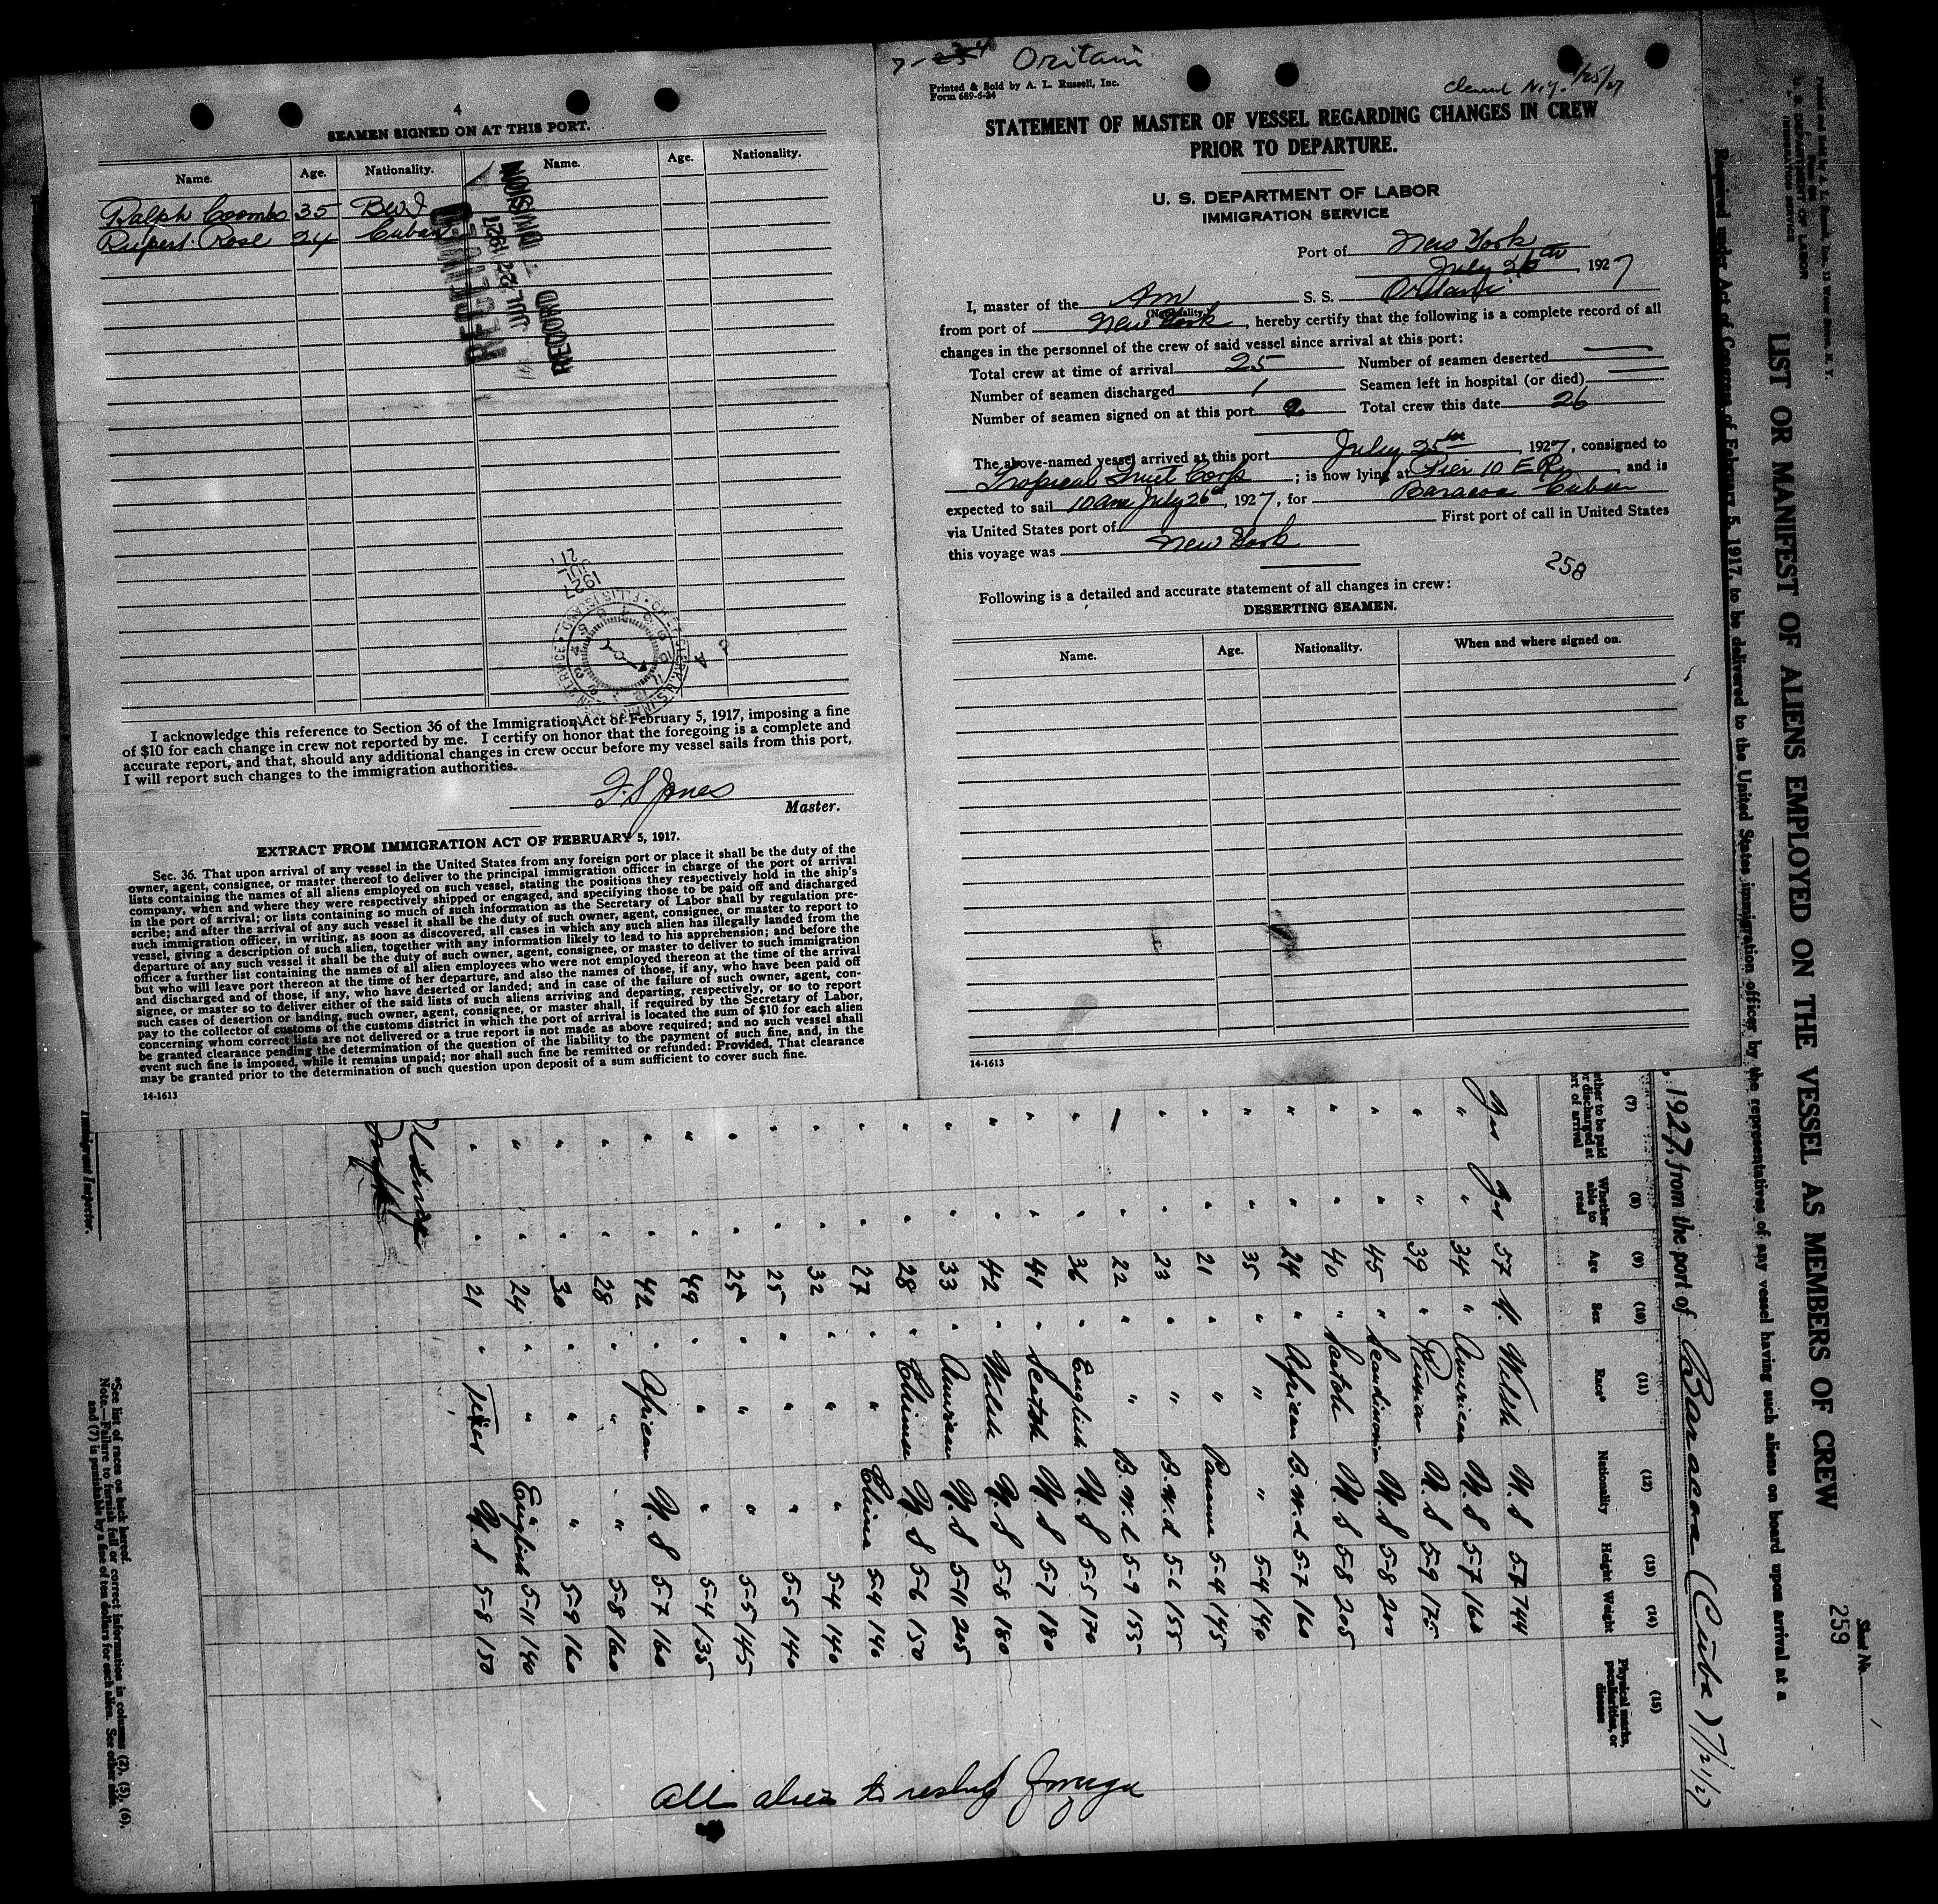 4
SEAMEN SIGNED ON AT THIS PORT.
Name. Age. Nationality. Name. Age. Nationality.
Ralph Coombs 35 B.W.I
Rupert Rose 24 Cuban
RECEIVED
JUL 22 1927
RECORD DIVISION
I acknowledge this reference to Section 36 of the Immigration Act of February 5, 1917, imposing a fine
of $10 for each change in crew not reported by me. I certify on honor that the foregoing is a complete and
accurate report, and that, should any additional changes in crew occur before my vessel sails from this port,
I will report such changes to the immigration authorities.
F. S Jones
Master.
EXTRACT FROM IMMIGRATION ACT OF FEBRUARY 5, 1917.
Sec. 36. That upon arrival of any vessel in the United States from any foreign port or place it shall be the duty of the
owner, agent, consignee, or master thereof to deliver to the principal immigration officer in charge of the port of arrival
lists containing the names of all aliens employed on such vessel, stating the positions they respectively hold in the ship's
company, when and where they were respectively shipped or engaged, and specifying those to be paid off and discharged
in the port of arrival; or lists containing so much of such information as the Secretary of Labor shall by regulation pre-
scribe; and after the arrival of any such vessel it shall be the duty of such owner, agent, consignee, or master to report to
such immigration officer, in writing, as soon as discovered, all cases in which any such alien has illegally landed from the
vessel, giving a description of such alien, together with any information likely to lead to his apprehension; and before the
departure of any such vessel it shall be the duty of such owner, agent, consignee, or master to deliver to such immigration
officer a further list containing the names of all alien employees who were not employed thereon at the time of the arrival
but who will leave port thereon at the time of her departure, and also the names of those, if any, who have been paid off
and discharged and of those, if any, who have deserted or landed; and in case of the failure of such owner, agent, con-
signee, or master so to deliver either of the said lists of such aliens arriving and departing, respectively, or so to report
such cases of desertion or landing, such owner, agent, consignee, or master shall, if required by the Secretary of Labor,
pay to the collector of customs of the customs district in which the port of arrival is located the sum of $10 for each alien
concerning whom correct lists are not delivered or a true report is not made as above required; and no such vessel shall
be granted clearance pending the determination of the question of the liability to the payment of such fine, and, in the
event such fine is imposed, while it remains unpaid; nor shall such fine be remitted or refunded: Provided, That clearance
may be granted prior to the determination of such question upon deposit of a sum sufficient to cover such fine.
14-1613
Oritani
Printed & Sold by A. L. Russell, Inc.
Form 689-6-24
Cleared N.Y. 1/25/27
STATEMENT OF MASTER OF VESSEL REGARDING CHANGES IN CREW
PRIOR TO DEPARTURE.
U. S. DEPARTMENT OF LABOR
IMMIGRATION SERVICE
Port of New York
July 26th, 1927
I, master of the Am S. S. Oritani
(Nationality)
from port of New York, hereby certify that the following is a complete record of all
changes in the personnel of the crew of said vessel since arrival at this port:
Total crew at time of arrival 25 Number of seamen deserted
Number of seamen discharged 1 Seamen left in hospital (or died)
Number of seamen signed on at this port 2 Total crew this date 26
The above-named vessel arrived at this port July 25th, 1927, consigned to
Tropical Fruit Corp; is now lying at Pier 10 E R, and is
expected to sail 10 am July 26th, 1927, for Baracoa Cuban
via United States port of First port of call in United States
this voyage was New York
258
Following is a detailed and accurate statement of all changes in crew:
DESERTING SEAMEN.
Name. Age. Nationality. When and where signed on.
14-1613
Sheet No. 1
259
U. S. DEPARTMENT OF LABOR
IMMIGRATION SERVICE
LIST OR MANIFEST OF ALIENS EMPLOYED ON THE VESSEL AS MEMBERS OF CREW
Required under Act of Congress of February 5, 1917, to be delivered to the United States immigration officer by the representatives of any vessel having such aliens on board upon arrival at a
, 1927, from the port of Baracoa (Cuba) 7/21/27
(7) (8) (9) (10) (11) (12) (13) (14) (15)
Whether able to read Age Sex Race* Nationality Height Weight Physical marks, peculiarities, or disease
Yes Yes 57 M. Welsh U. S 5-7
" " 34 " American U. S 5-7 160
" " 39 " Russian U. S 5-9 175
" " 45 " Scandinavian U. S 5-8 200
" " 40 " Scotch U. S 5-8 205
" " 24 " African B. W. I 5-7 160
" " 35 " " " 5-4 140
" " 21 " " Panama 5-4 145
" " 23 " " B. W. I 5-6 155
" 22 " " B. W. I 5-9 155
" " 36 " English U. S 5-5 170
" " 41 " Scotch U. S 5-7 180
" " 42 " Welsh U. S 5-8 180
" " 33 " American U. S 5-11 205
" " 28 " Chinese U. S 5-6 150
" " 27 " " China 5-4 140
" " 32 " " " 5-4 140
" " 25 " " " 5-5 140
" " 25 " " " 5-5 145
" " 49 " " " 5-4 135
" " 42 " African U. S 5-7 160
" " 28 " " " 5-8 160
" " 30 " " " 5-9 160
" " 24 " " English 5-11 140
" " 21 " U. S 5-8 150
All aliens to reship foreign
Immigrant Inspector.
*See list of races on back hereof.
Note.—Failure to furnish full or correct information in columns (2), (5), (6),
and (7) is punishable by a fine of ten dollars for each alien. See other side.